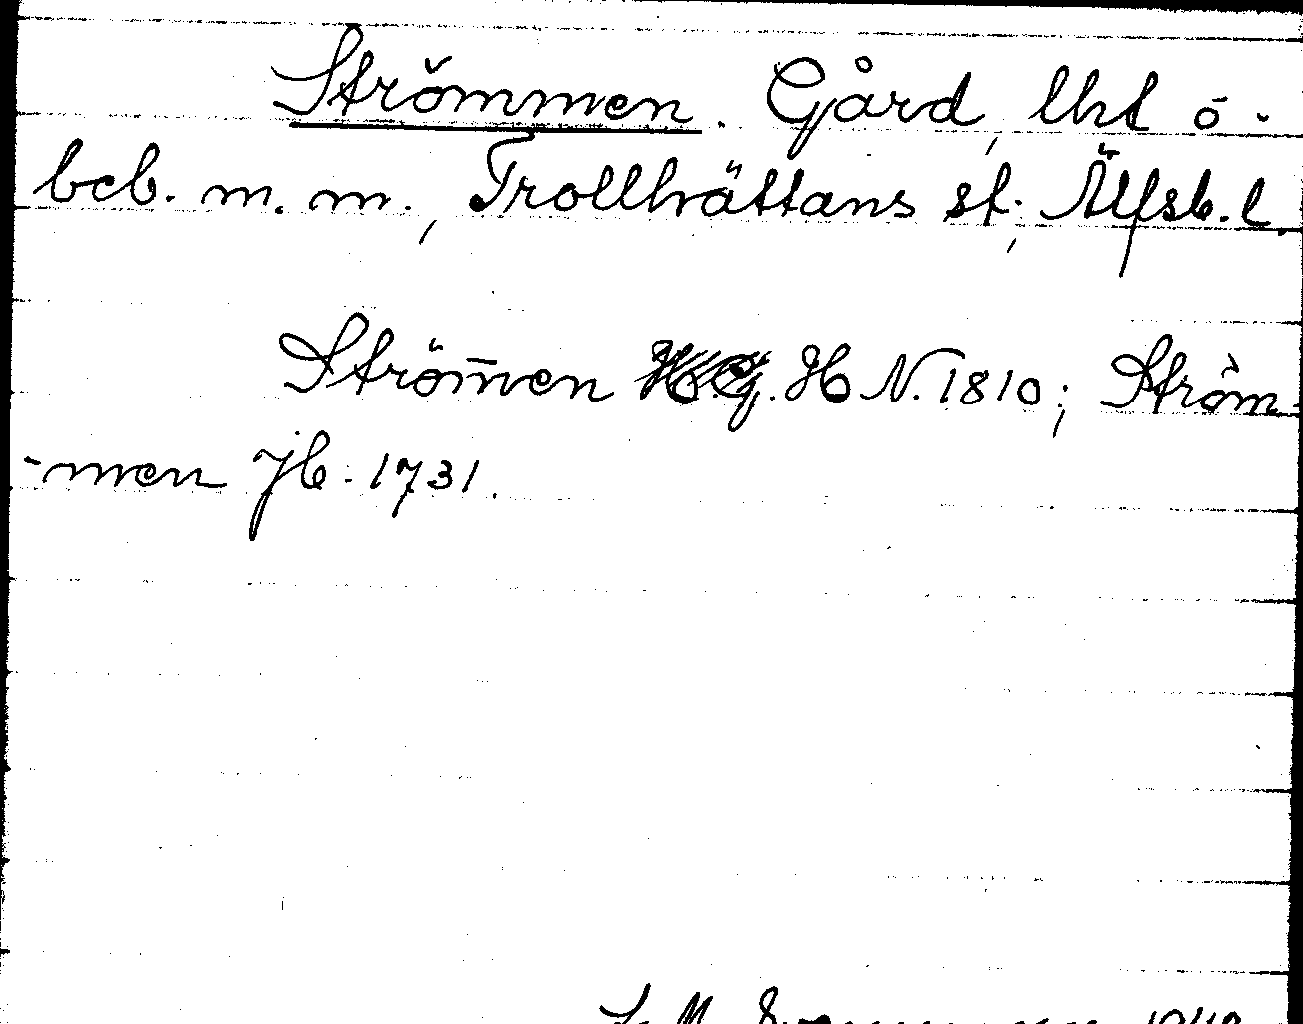 Strömmen. Gård, lht o.
beb. m. m., Trollhättans st., Älfsb. l.
Ström̄en H N. 1810; Ström-
-men Jb. 1731.